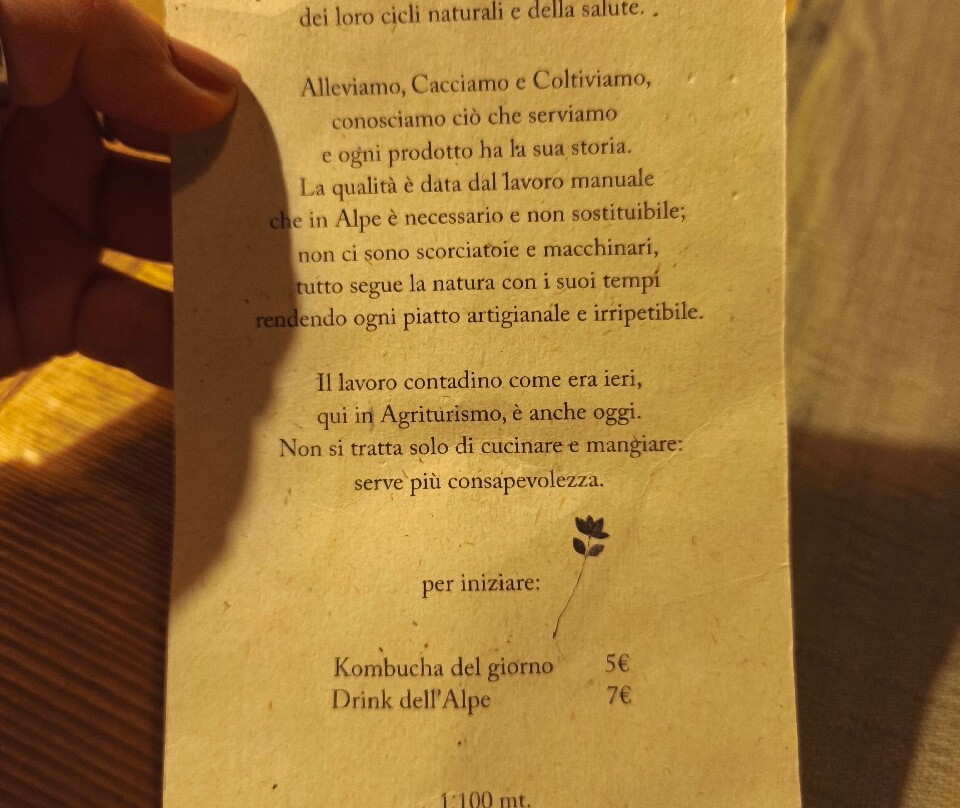 dei loro cicli naturali e della salute. .
Alleviamo, Cacciamo e Coltiviamo,
conosciamo ciò che serviamo
e ogni prodotto ha la sua storia.
La qualità è data dal lavoro manuale
che in Alpe è necessario e non sostituibile;
non ci sono scorciatoie e macchinari,
tutto segue la natura con i suoi tempi
rendendo ogni piatto artigianale e irripetibile.
Il lavoro contadino come era ieri,
qui in Agriturismo, è anche oggi.
Non si tratta solo di cucinare e mangiare:
serve più consapevolezza.
per iniziare:
Kombucha del giorno 5€
Drink dell'Alpe 7€
1.100 mt.